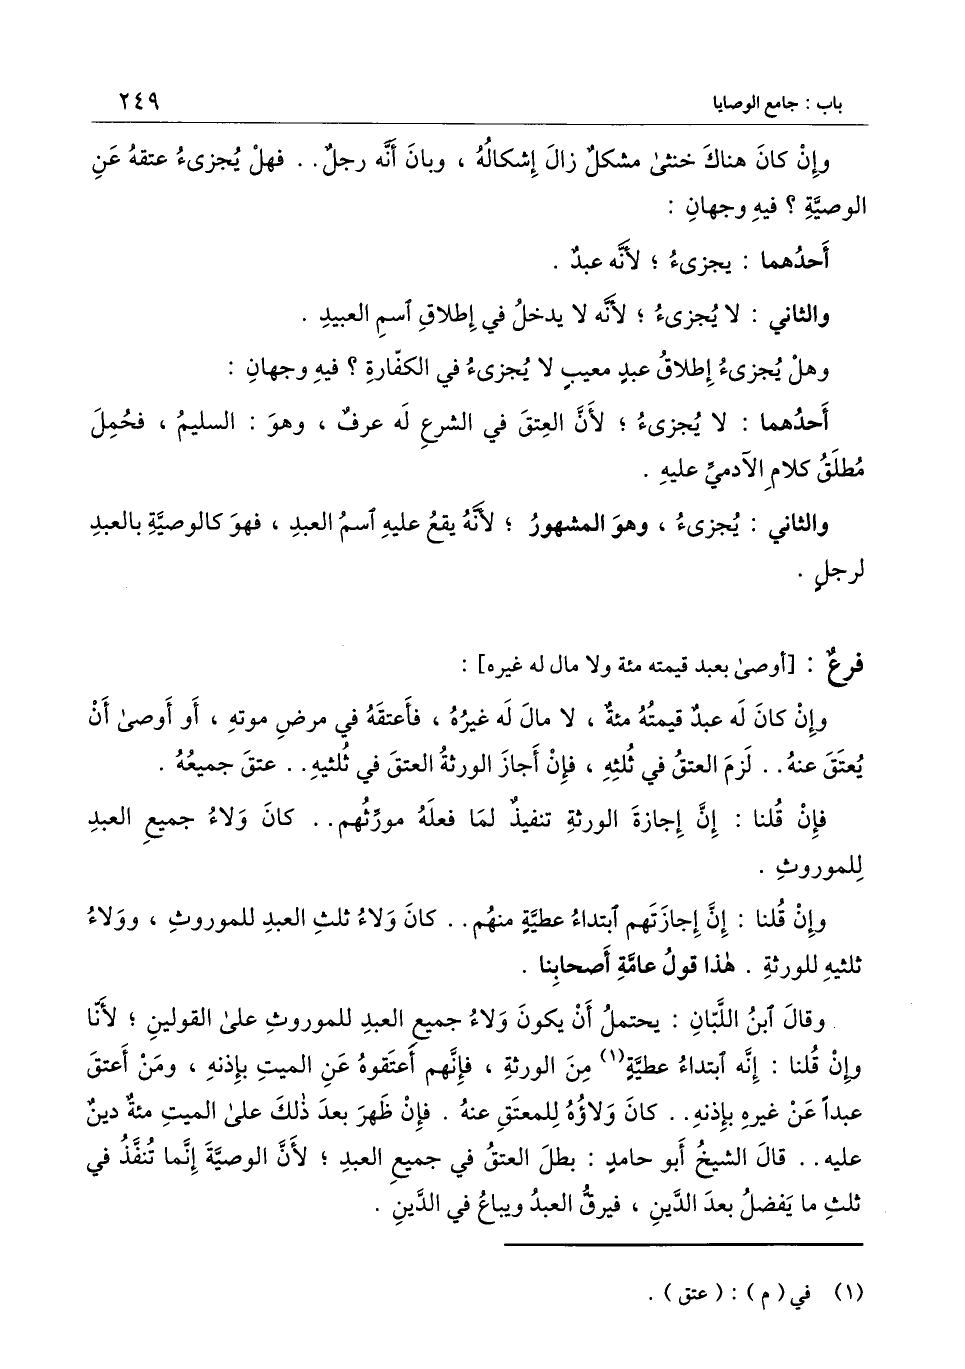 باب : جامع الوصايا ٢٤٩
وإِنْ كانَ هناكَ خنثىٰ مشكلٌ زالَ إِشكالُهُ ، وبانَ أَنَّه رجلٌ . . فهلْ يُجزىءُ عتقهُ عَنِ
الوصيَّةِ ؟ فيهِ وجهانِ :
أَحدُهما : يجزىءُ ؛ لأَنَّه عبدٌ .
والثاني : لا يُجزىءُ ؛ لأَنَّه لا يدخلُ في إِطلاقِ ٱسمِ العبيدِ .
وهلْ يُجزىءُ إِطلاقُ عبدٍ معيبٍ لا يُجزىءُ في الكفّارةِ ؟ فيهِ وجهانِ :
أَحدُهما : لا يُجزىءُ ؛ لأَنَّ العِتقَ في الشرعِ لَه عرفٌ ، وهوَ : السليمُ ، فحُمِلَ
مُطلَقُ كلامِ الآدميِّ عليهِ .
والثاني : يُجزىءُ ، وهوَ المشهورُ ؛ لأَنَّهُ يقعُ عليهِ ٱسمُ العبدِ ، فهوَ كالوصيَّةِ بالعبدِ
لرجلٍ .
فرعٌ : [أوصىٰ بعبد قيمته مئة ولا مال له غيره] :
وإِنْ كانَ لَه عبدٌ قيمتُهُ مئةٌ ، لا مالَ لَه غيرُهُ ، فأَعتقَهُ في مرضِ موتهِ ، أَو أَوصىٰ أَنْ
يُعتَقَ عنهُ . . لَزمَ العتقُ في ثُلثِهِ ، فإِنْ أَجازَ الورثةُ العتقَ في ثُلثيهِ . . عتقَ جميعُهُ .
فإِنْ قُلنا : إِنَّ إِجازةَ الورثةِ تنفيذٌ لمَا فعلَهُ مورِّثُهم . . كانَ وَلاءُ جميعِ العبدِ
لِلموروثِ .
وإِنْ قُلنا : إِنَّ إِجازتَهم ٱبتداءُ عطيَّةٍ منهُم . . كانَ وَلاءُ ثلثِ العبدِ للموروثِ ، ووَلاءُ
ثلثيهِ للورثةِ . هٰذا قولُ عامَّةِ أَصحابِنا .
وقالَ ٱبنُ اللَّبّانِ : يحتملُ أَنْ يكونَ وَلاءُ جميعِ العبدِ للموروثِ علىٰ القولينِ ؛ لأَنّا
وإِنْ قُلنا : إِنَّه ٱبتداءُ عطيَّةٍ(١) مِنَ الورثةِ ، فإِنَّهم أَعتَقوهُ عَنِ الميتِ بإِذنهِ ، ومَنْ أَعتقَ
عبداً عَنْ غيرهِ بإِذنهِ . . كانَ وَلاؤُهُ لِلمعتَقِ عنهُ . فإِنْ ظهَرَ بعدَ ذٰلكَ علىٰ الميتِ مئةٌ دينٌ
عليه . . قالَ الشيخُ أَبو حامدٍ : بطلَ العتقُ في جميعِ العبدِ ؛ لأَنَّ الوصيَّةَ إِنَّما تُنفَّذُ في
ثلثِ ما يَفضلُ بعدَ الدَّينِ ، فيرقُّ العبدُ ويباعُ في الدَّينِ .
(١) في ( م ) : ( عتق ) .